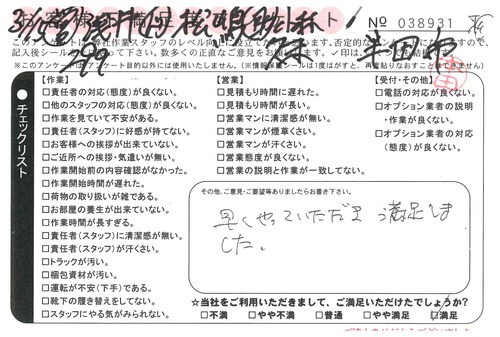 No 038931
このアンケートは、弊社作業スタッフのレベル向上に役立てております。否定的な
記入後シールで
※このアンケートはアンケート目的以外には使用いたしません。(※情報保護シールは1度はがすと、再度貼りなおすことはできません)
チェックリスト
【作業】
□責任者の対応(態度)が良くない。
□他のスタッフの対応(態度)が良くない。
□作業を見ていて不安がある。
□責任者(スタッフ)に好感が持てない。
□お客様への挨拶が出来ていない。
□ご近所への挨拶・気遣いが無い。
□作業開始前の内容確認がなかった。
□作業開始時間が遅れた。
□荷物の取り扱いが雑である。
□お部屋の養生が出来ていない。
□作業時間が長すぎる。
□責任者(スタッフ)に清潔感が無い。
□責任者(スタッフ)が汗くさい。
□トラックが汚い。
□梱包資材が汚い。
□運転が不安(下手)である。
□靴下の履き替えをしてない。
□スタッフにやる気がみられない。
【営業】
□見積もり時間に遅れた。
□見積もり時間が長い。
□営業マンに清潔感が無い。
□営業マンが煙草くさい。
□営業マンが汗くさい。
□営業態度が良くない。
□営業の説明と作業が一致してない。
【受付・その他】
□電話の対応が良くない。
□オプション業者の説明
・作業が良くない。
□オプション業者の対応
(態度)が良くない。
その他、ご意見・ご要望等ありましたらお書き下さい。
早くやっていただき 満足しま
した。
☆当社をご利用いただきまして、ご満足いただけたでしょうか?
□不満 □やや不満 □普通 □やや満足 □満足